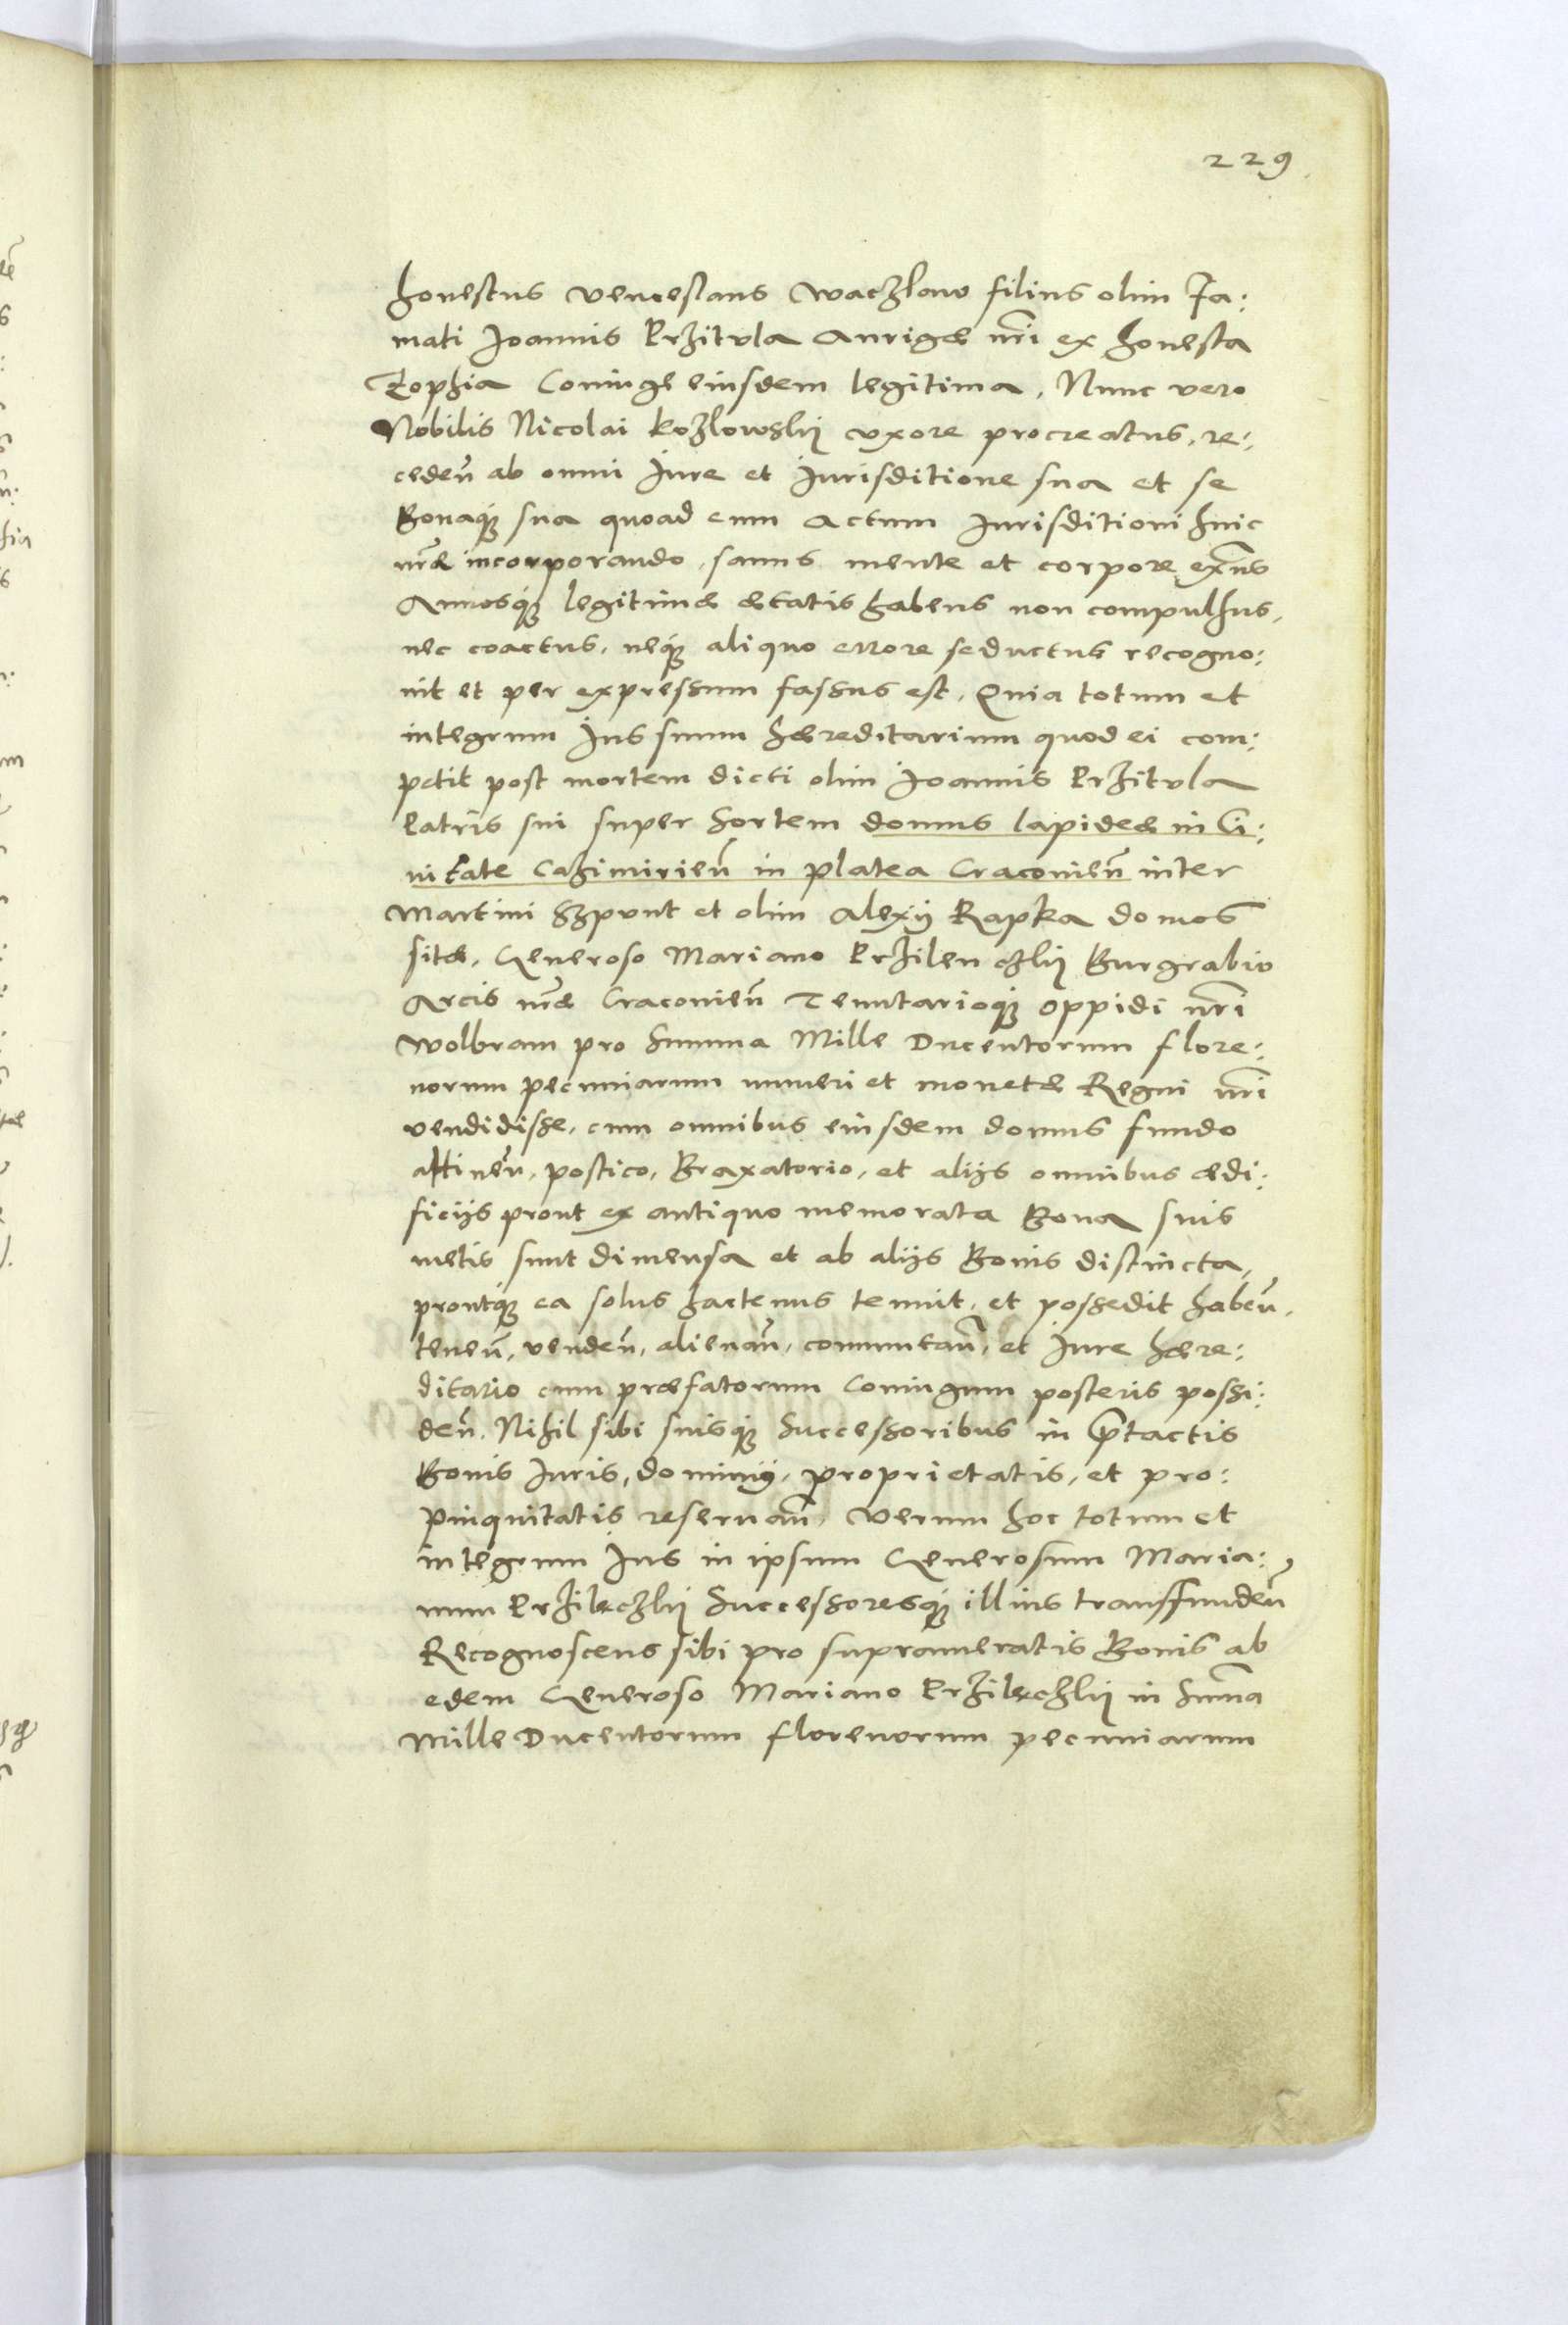 229
honestus Venceslaus Waczlaw filius olim Fa:
mati Joannis Przitvla Aurigæ nr̃i ex honesta
Zophia Coniuge eiusdem legitima, Nunc vero
Nobilis Nicolai Kozlowskij vxore procreatus, re:
ceden̄ ab omni Jure et Jurisditione sua et se
Bonaq́ꝫ sua quoad eum Actum Jurisditioni huic
nr̃æ incorporando, sanus mente et corpore exn̄s
Annosq́ꝫ legitimæ ætatis habens non compulsus,
nec coactus, neq́ꝫ aliquo errore seductus recogno:
uit et per expressum fassus est, Quia totum et
integrum Jus suum hæreditarium quod ei com:
petit post mortem dicti olim Joannis Przitvla
Patris sui super Sortem domus lapideæ in Ci:
uitate Cazimirien̄ in platea Cracouien̄ inter
Martini Szpvnt et olim Alexij Rapka domos
sitæ, Generoso Mariano Przilenczkij Burgrabio
Arcis nr̃æ Cracouien̄ Tenutarioq́ꝫ Oppidi nr̃i
Wolbram pro Summa Mille Ducentorum flore:
norum pecuniarum numeri et monetæ Regni nr̃i
vendidisse, cum omnibus eiusdem domus fundo
attinen̄, postico, Braxatorio, et alijs omnibus ædi:
ficijs prout ex antiquo memorata Bona suis
metis sunt dimensa et ab alijs Bonis distincta,
proutq́ꝫ ea solus hactenus tenuit, et possedit haben̄,
tenen̄, venden̄, alienan̄, commutan̄, et Jure hære:
ditario cum præfatorum Coniugum posteris possi:
den̄. Nihil sibi suisq́ꝫ Successoribus in p̄tactis
Bonis Juris, dominij, proprietatis, et pro:
pinquitatis reseruan̄, Verum hoc totum et
integrum Jus in ipsum Generosum Maria:
num Przileczkij Successoresq́ꝫ illius transfunden̄
Recognoscens sibi pro supranieratis Bonis ab
edem Generoso Mariano Przileczkij in Sum̄a
Mille Ducentorum florenorum pecuniarum